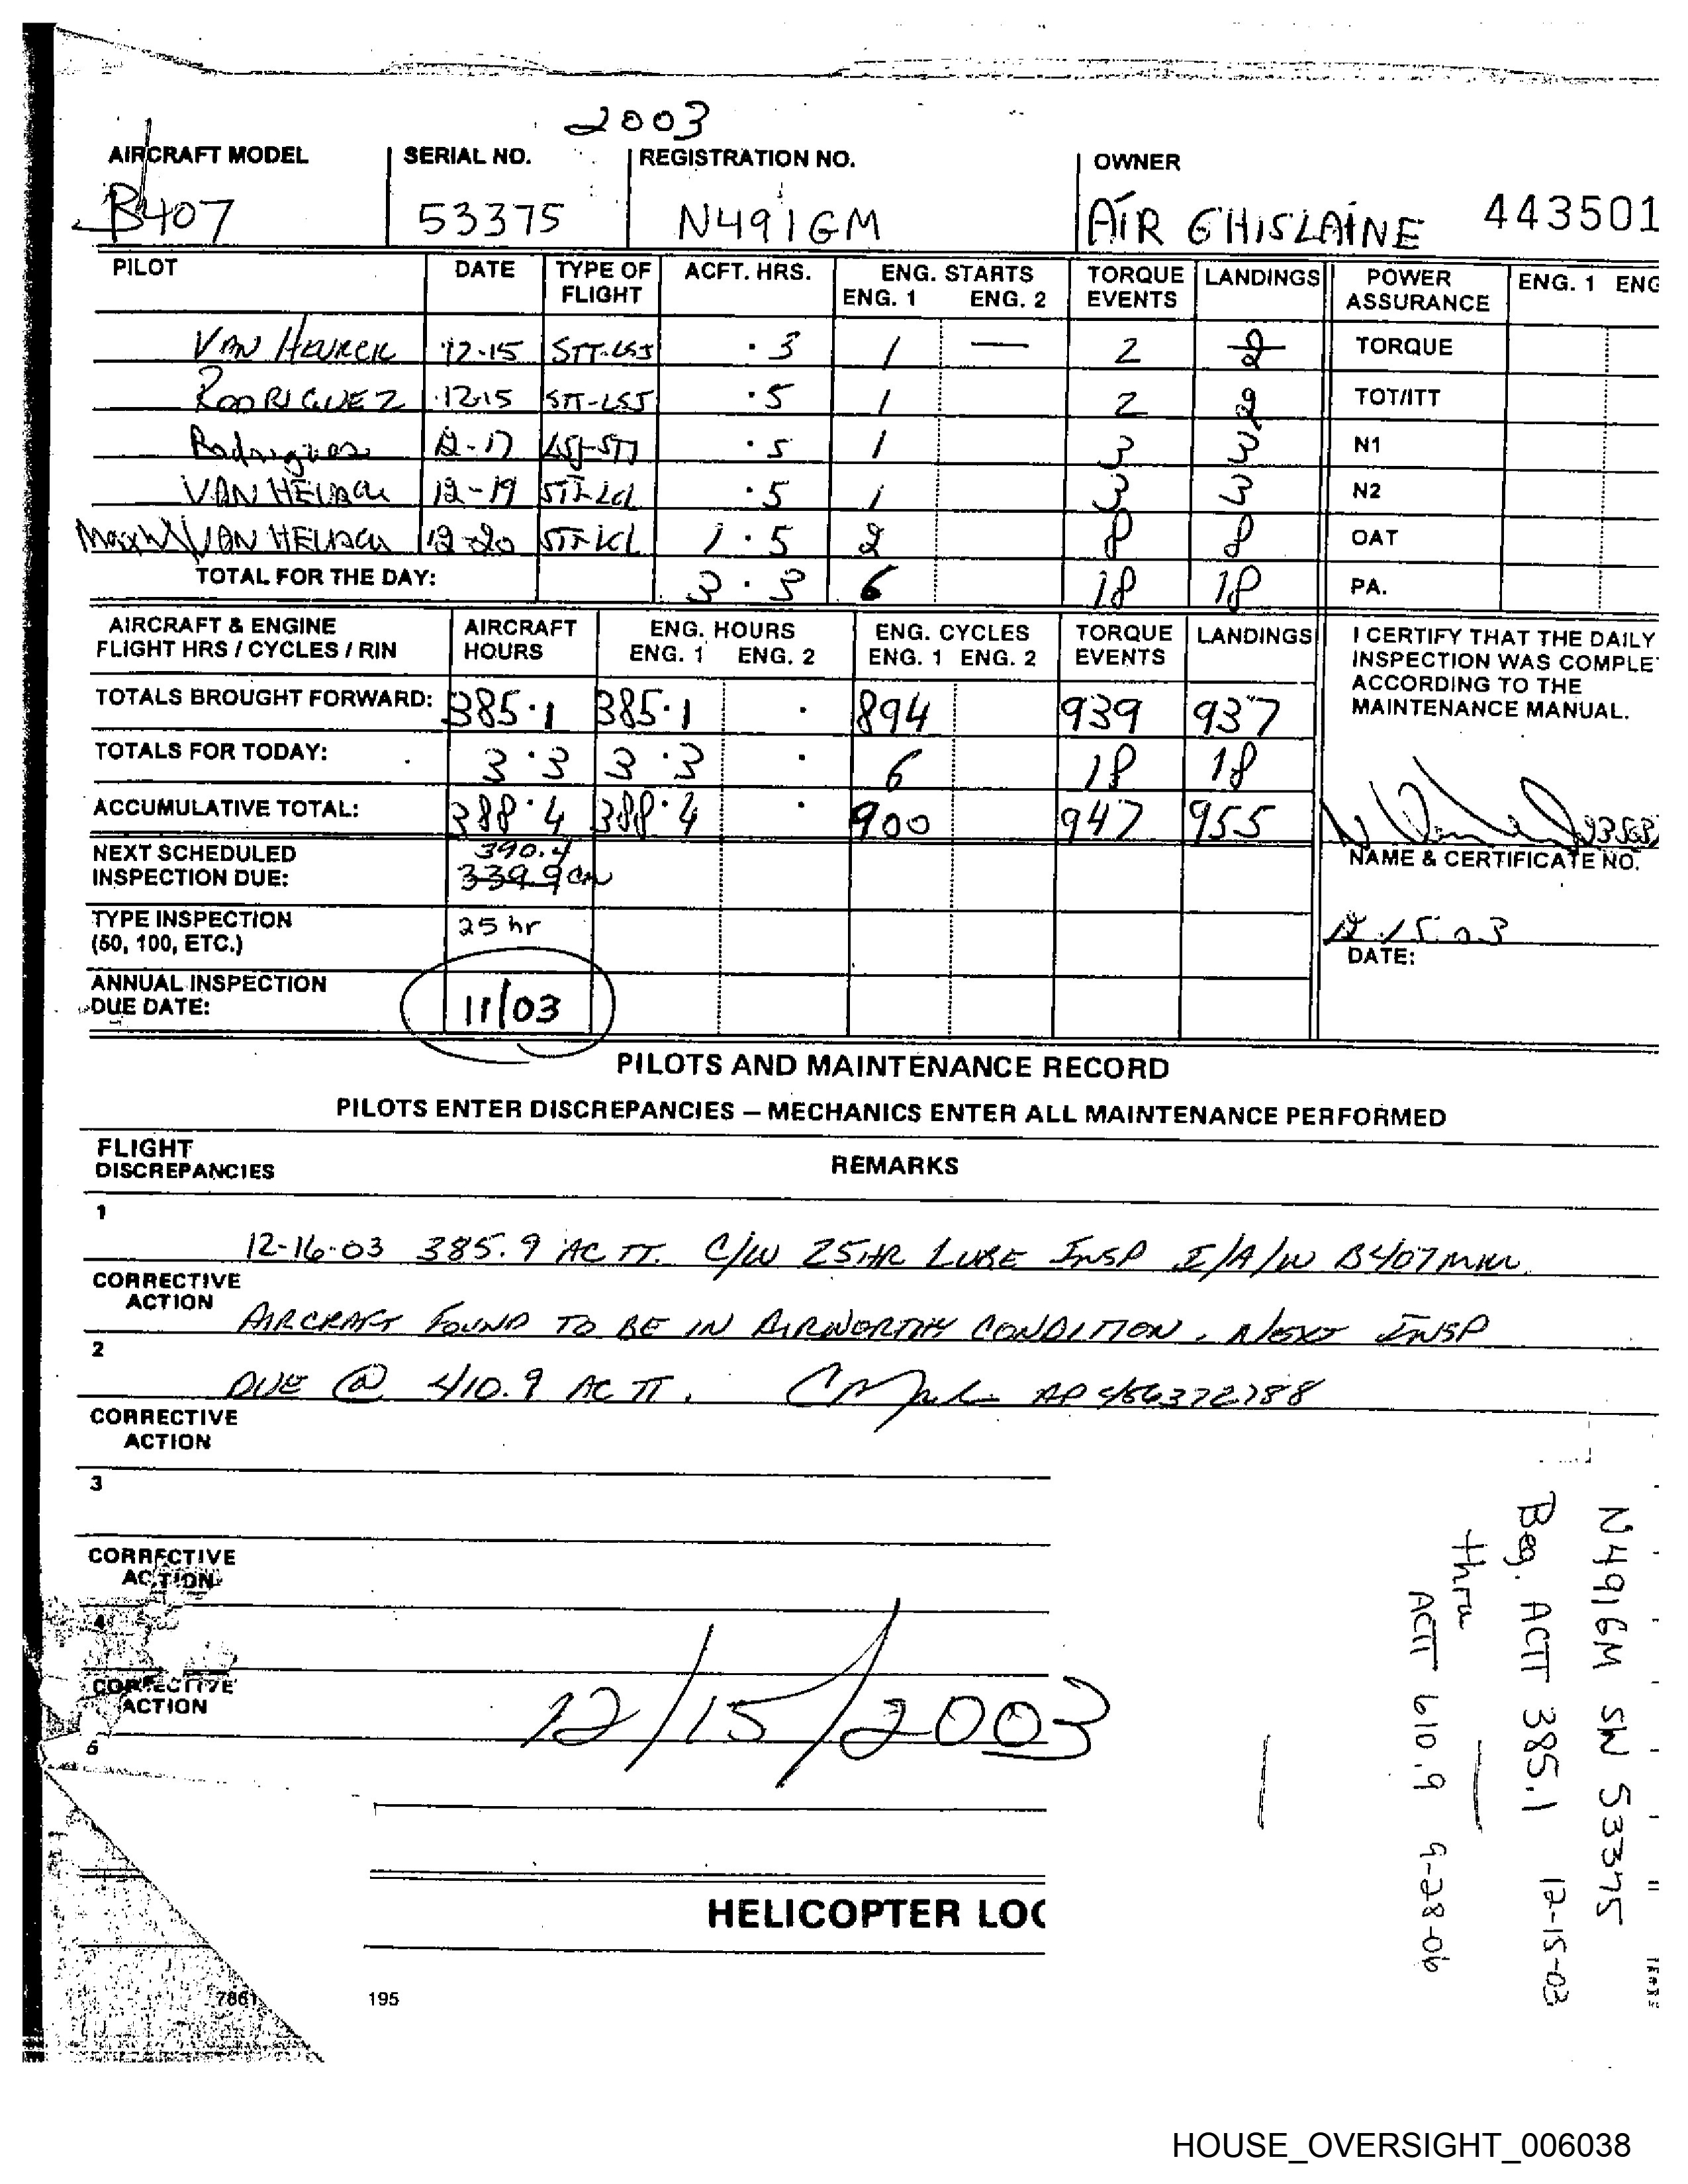 2003
AIRCRAFT MODEL SERIAL NO. REGISTRATION NO. OWNER
B407 53375 N491GM AIR GHISLAINE 443501
PILOT DATE TYPE OF FLIGHT ACFT. HRS. ENG. STARTS ENG. 1 ENG. 2 TORQUE EVENTS LANDINGS POWER ASSURANCE ENG. 1 ENG
12-15 STT-LSJ .3 1 — 2 2 TORQUE
RODRIGUEZ 12-15 STT-LSJ .5 1 2 2 TOT/ITT
Rodriguez 12-17 LSJ-STT .5 1 3 3 N1
12-19 .5 1 3 3 N2
12-20 1.5 2 8 8 OAT
TOTAL FOR THE DAY: 3.3 6 18 18 PA.
AIRCRAFT & ENGINE FLIGHT HRS / CYCLES / RIN AIRCRAFT HOURS ENG. HOURS ENG. 1 ENG. 2 ENG. CYCLES ENG. 1 ENG. 2 TORQUE EVENTS LANDINGS
I CERTIFY THAT THE DAILY
INSPECTION WAS COMPLE
ACCORDING TO THE
MAINTENANCE MANUAL.
TOTALS BROUGHT FORWARD: 385.1 385.1 . 894 939 937
TOTALS FOR TODAY: 3.3 3.3 . 6 18 18
ACCUMULATIVE TOTAL: 388.4 388.4 . 900 947 955
NAME & CERTIFICATE NO.
390.4
NEXT SCHEDULED INSPECTION DUE: 339.9
TYPE INSPECTION (50, 100, ETC.) 25 hr
12.15.03
DATE:
ANNUAL INSPECTION DUE DATE: 11/03
PILOTS AND MAINTENANCE RECORD
PILOTS ENTER DISCREPANCIES – MECHANICS ENTER ALL MAINTENANCE PERFORMED
FLIGHT DISCREPANCIES REMARKS
1
12-16-03 385.9 AC TT. C/W 25HR LUBE INSP I/A/W B407 MM.
CORRECTIVE ACTION
AIRCRAFT FOUND TO BE IN AIRWORTHY CONDITION. NEXT INSP
2
DUE @ 410.9 AC TT.
CORRECTIVE ACTION
3
CORRECTIVE ACTION
4
CORRECTIVE ACTION
5
12/15/2003
HELICOPTER LO
7861 195
N491GM SN 53375
Beg. ACTT 385.1 12-15-03
thru
ACTT 610.9 9-28-06
HOUSE_OVERSIGHT_006038